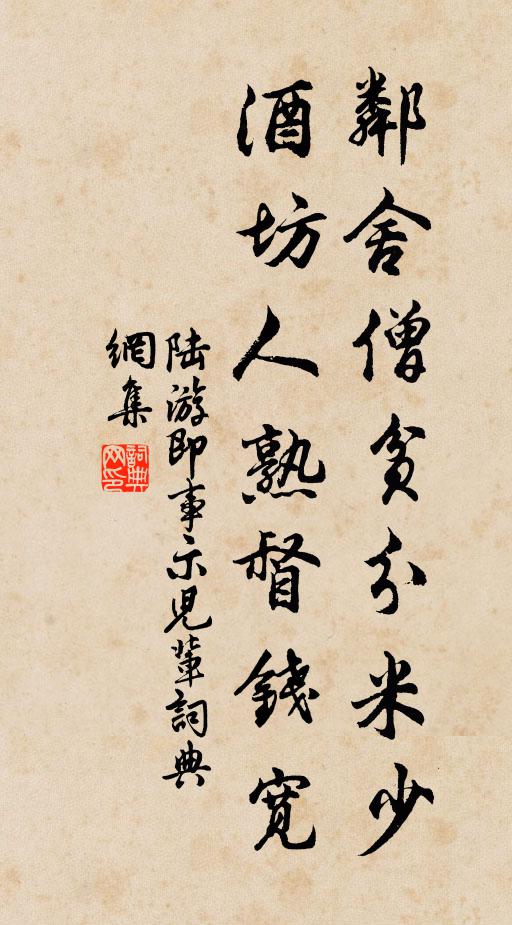 鄰舍僧貧分米少
酒坊人熟督錢寬
陆游即事示児輩詞典
網集
詞典網印